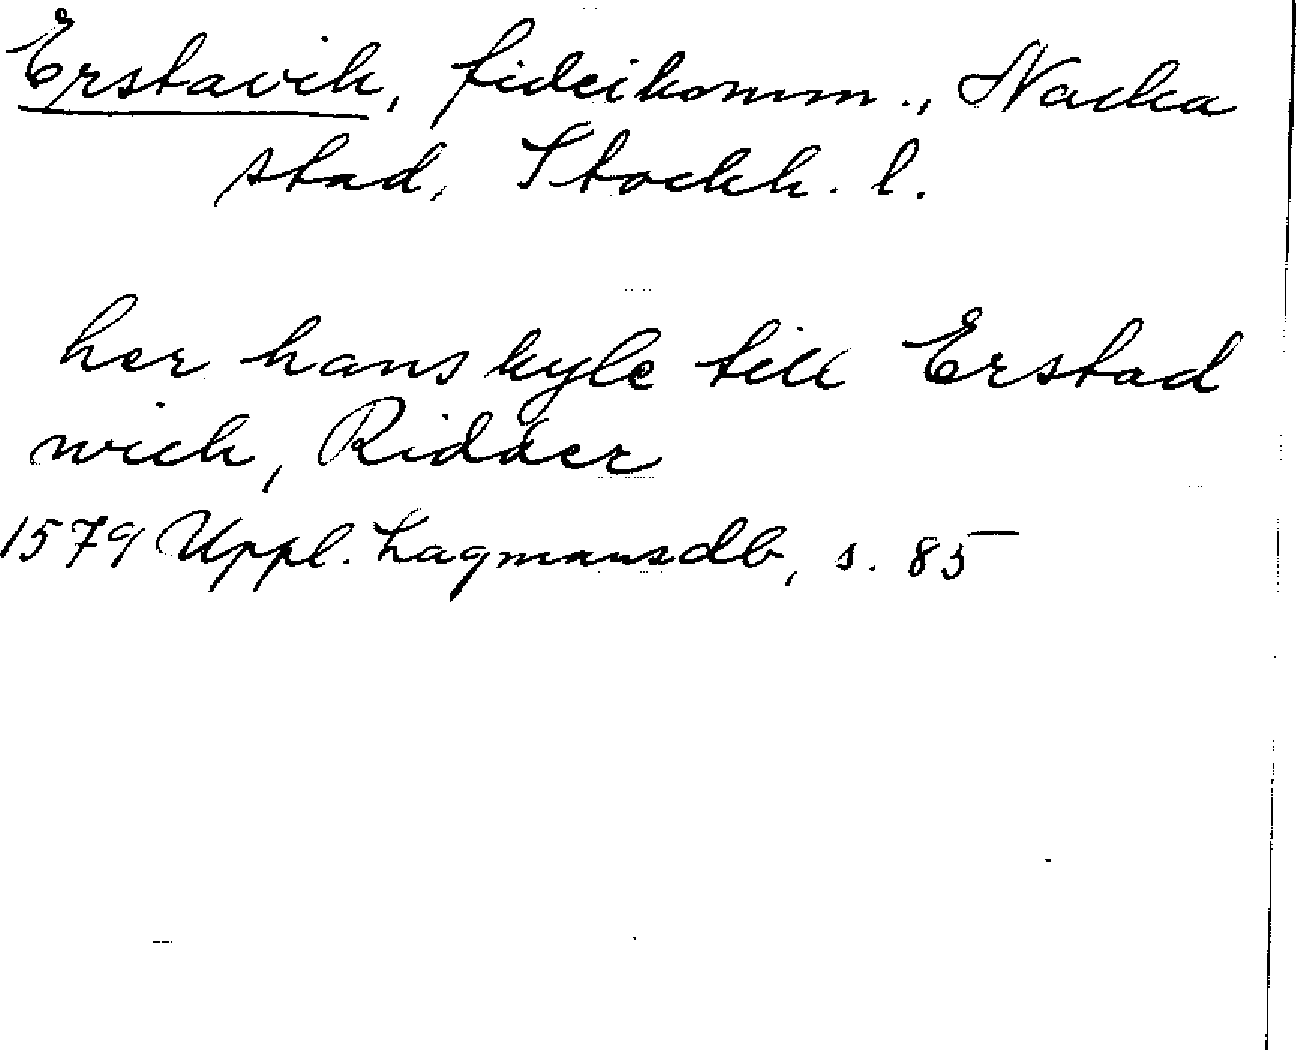 Erstavik, fideikomm., Nacka
stad, Stockh. l.
her hans kyle till Erstad
wick, Ridder
1579 Uppl. Lagmansdb, s. 85